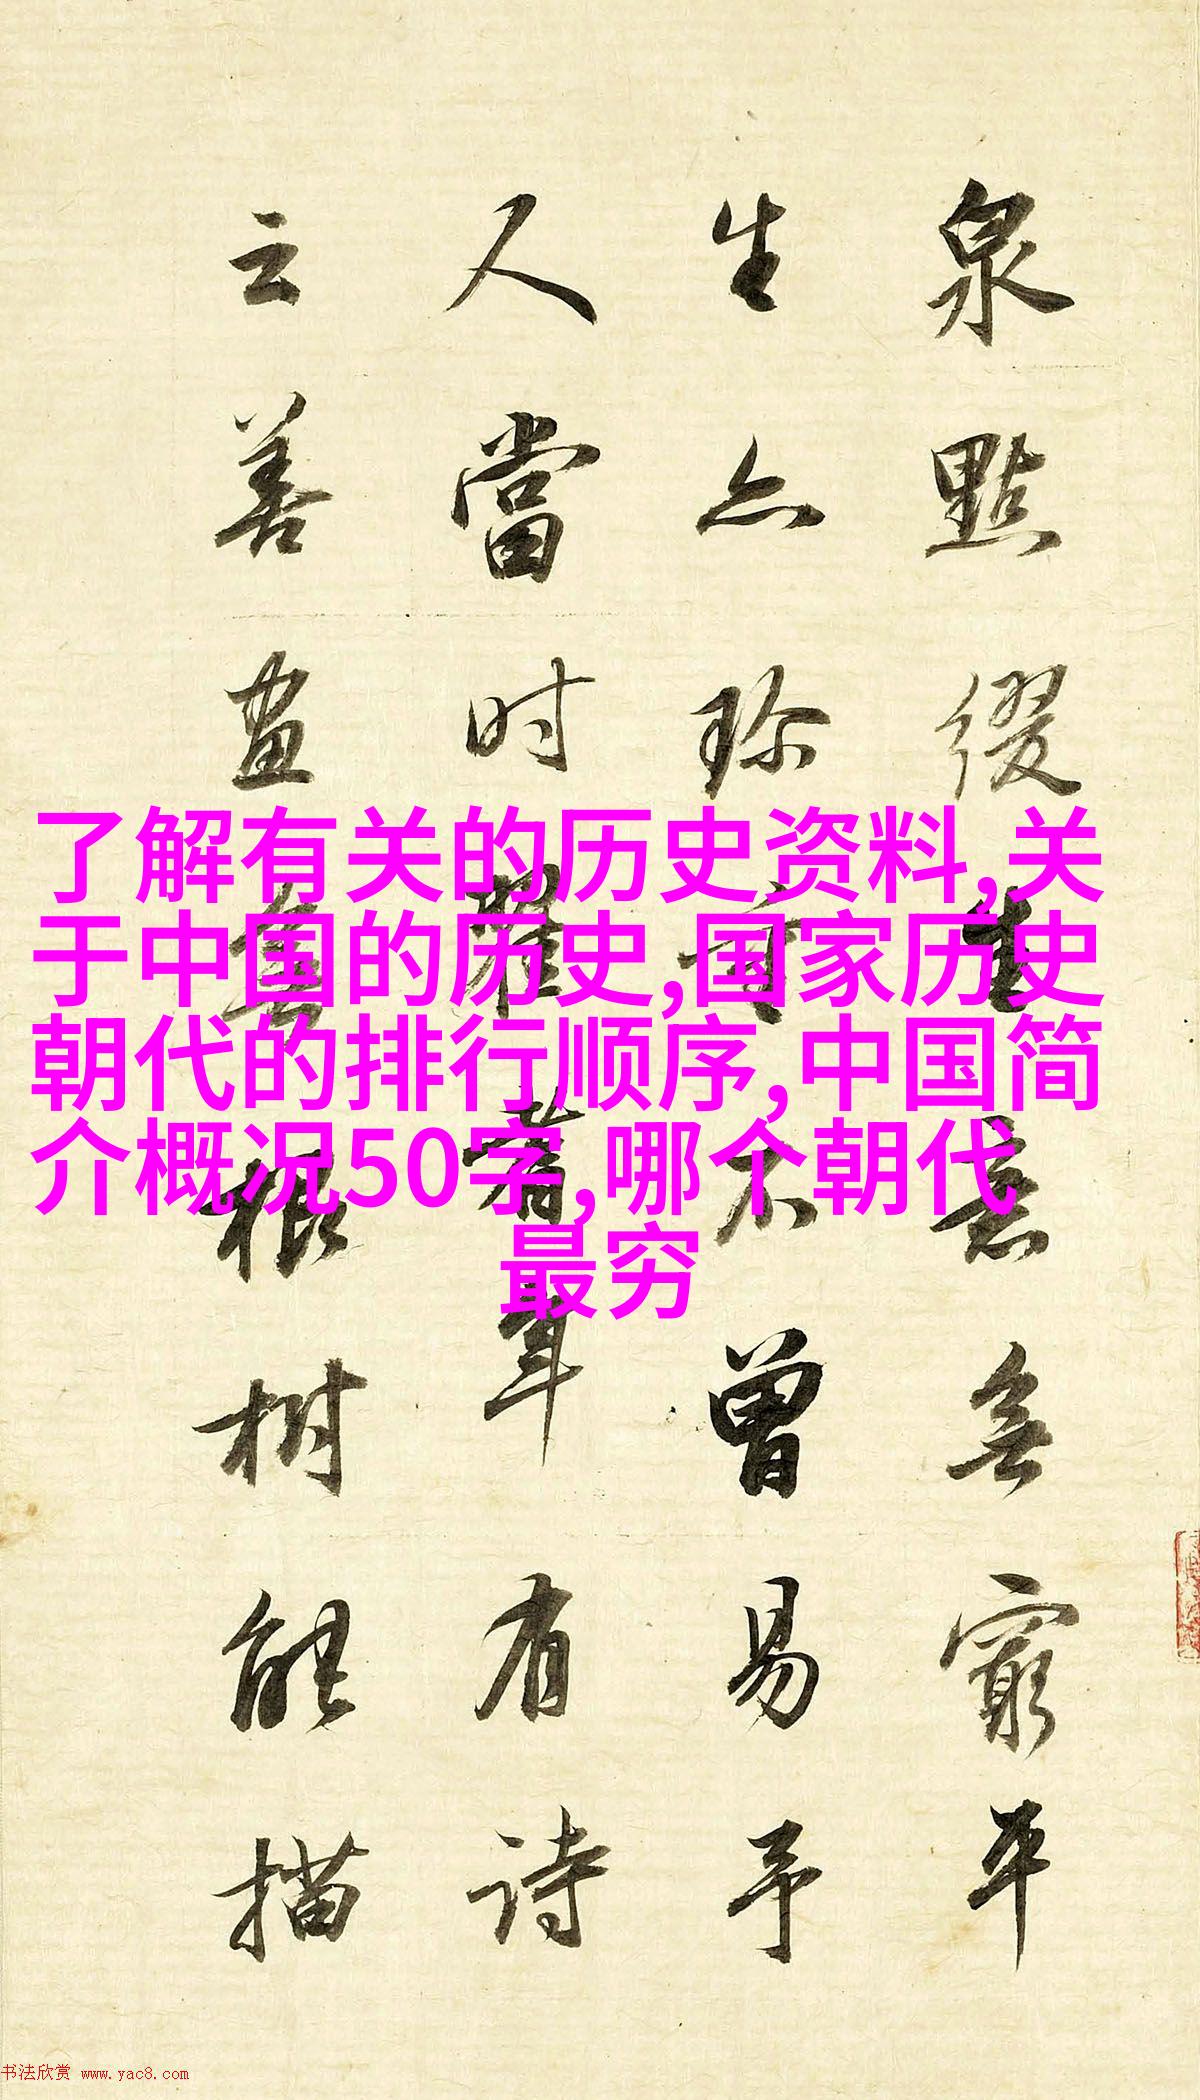 了解有关的历史资料,关
于中国的历史,国家历史
朝代的排行顺序,中国简
介概况50字,哪个朝代
最穷
泉點缀生意無窮平
生亦珍賞不曾易予
人當时有诗
云善畫樹能描
书法欣赏 www.yac8.com